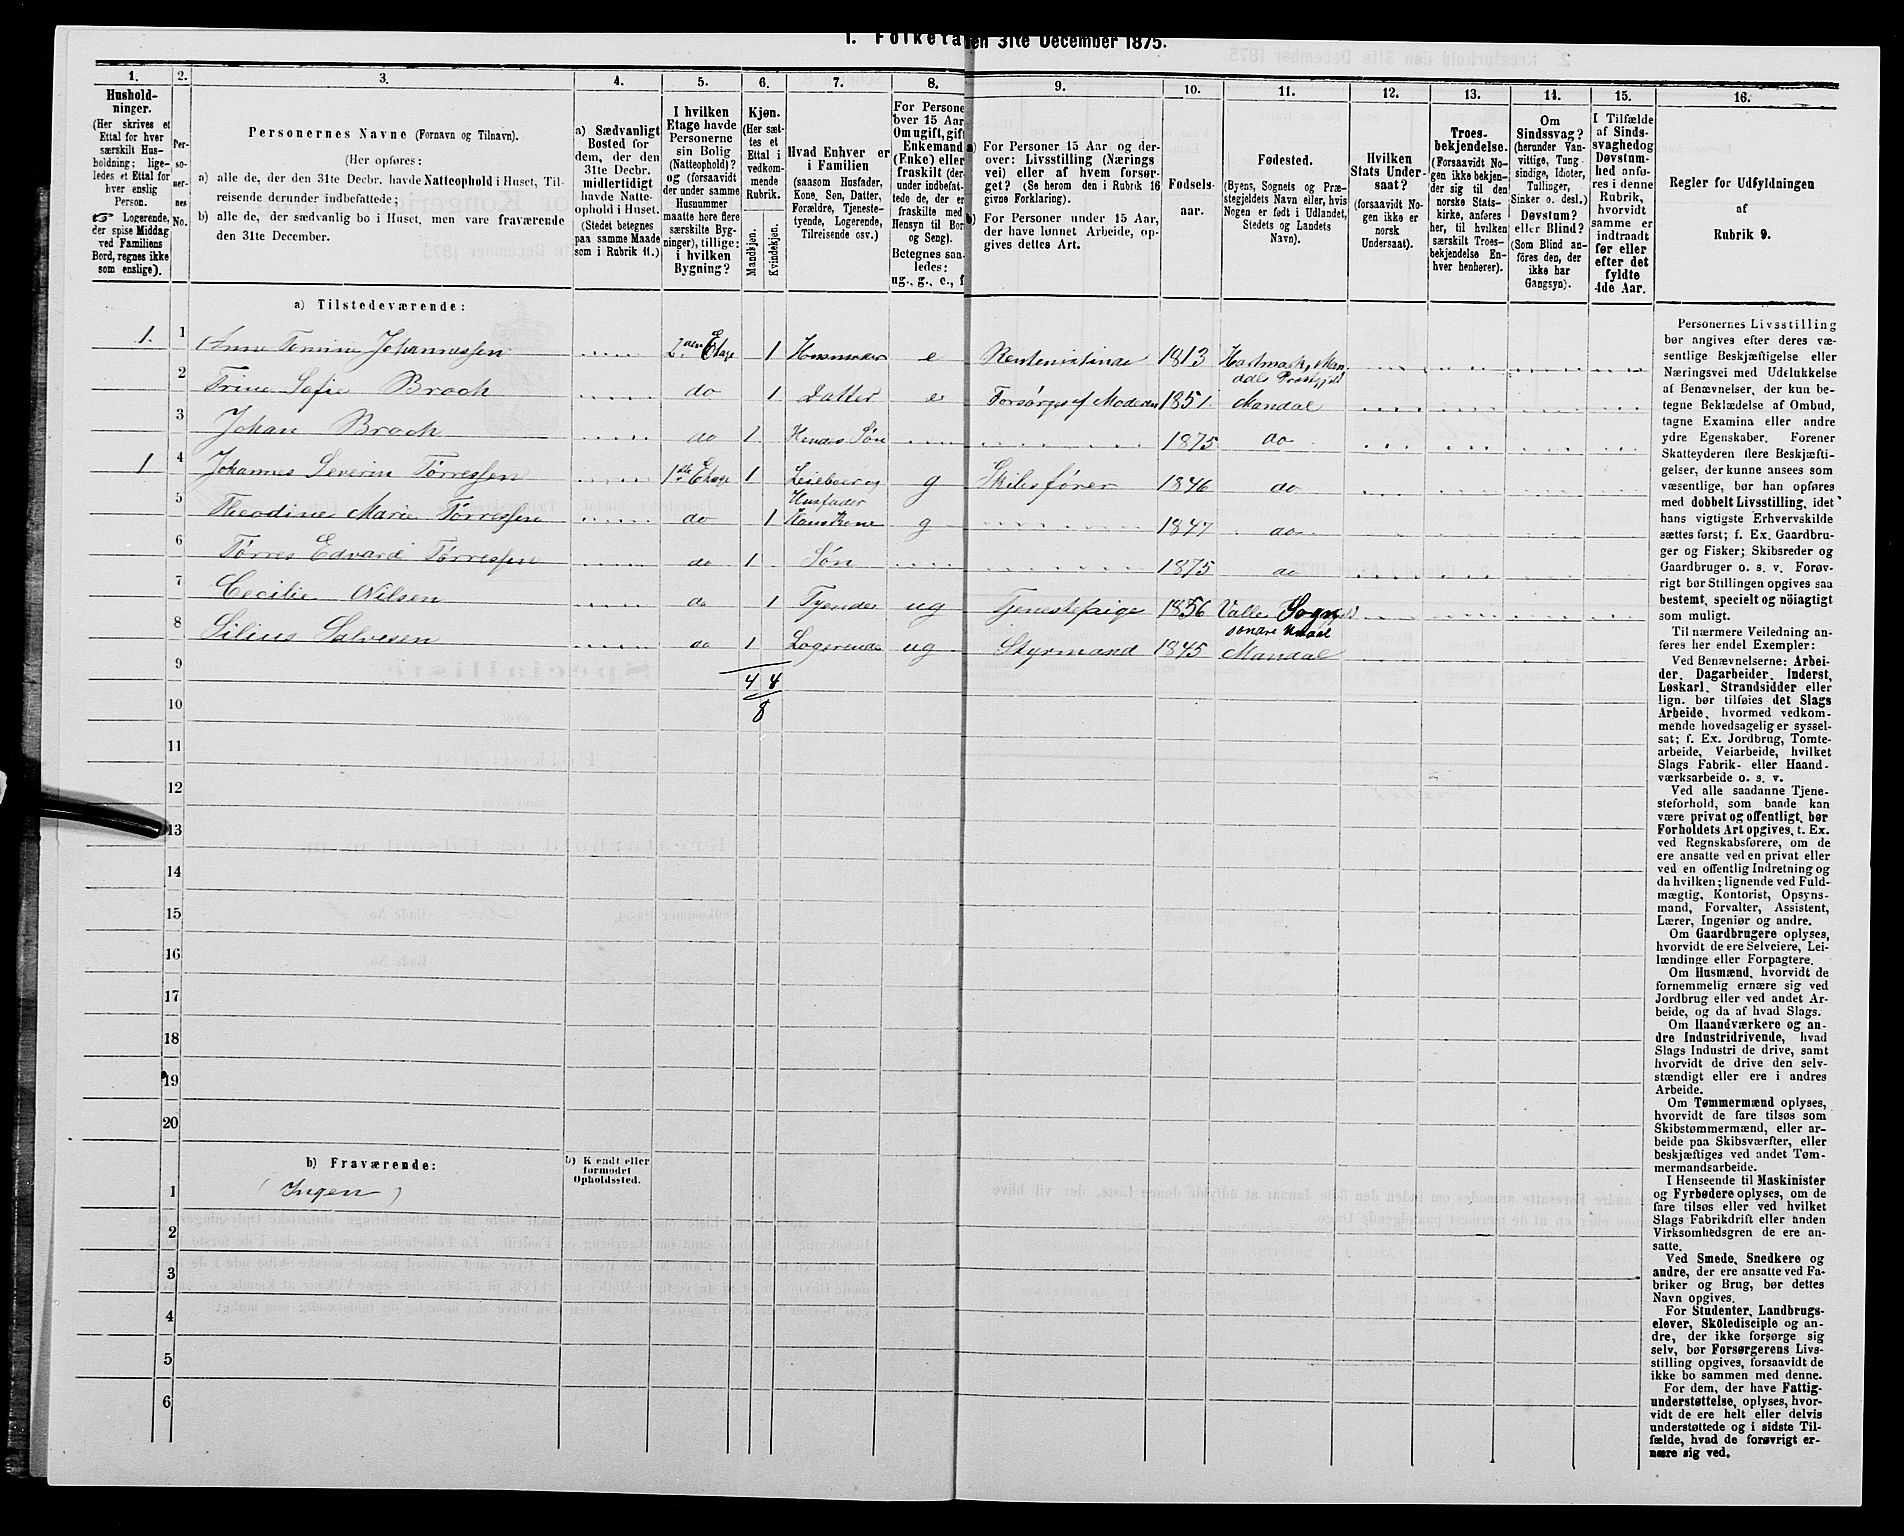 1. Folketal den 31te December 1875.
1. 2. 3. 4. 5. 6. 7. 8. 9. 10. 11. 12. 13. 14. 15. 16.
Hushold-
ninger.
(Her skrives et
Ettal for hver
særskilt Hus-
holdning; lige-
ledes et Ettal for
hver enslig
Person.
☞ Logerende,
der spise Middag
ved Familiens
Bord, regnes ikke
som enslige).
Per-
so-
ner-
nes
No.
Personernes Navne (Fornavn og Tilnavn).
(Her opføres:
a) alle de, der den 31te Decbr. havde Natteophold i Huset, Til-
reisende derunder indbefattede;
b) alle de, der sædvanlig bo i Huset, men vare fraværende
den 31te December.
a) Sædvanligt
Bosted for
dem, der den
31te Decbr.
midlertidigt
havde Natte-
ophold i Huset.
(Stedet betegnes
paa samme Maade
som i Rubrik 11.)
I hvilken
Etage havde
Personerne
sin Bolig
(Natteophold)?
og (forsaavidt
der under samme
Husnummer
maatte høre flere
særskilte Byg-
ninger), tillige:
i hvilken
Bygning?
Kjøn.
(Her sæt-
tes et
Ettal i
vedkom-
mende
Rubrik.
Mandkjøn.
Kvindekjøn.
Hvad Enhver er
i Familien
(saasom Husfader,
Kone, Søn, Datter,
Forældre, Tjeneste-
tyende, Logerende,
Tilreisende osv.)
For Persone
over 15 Aar
Om ugift, gift
Enkemand
(Enke) eller
fraskilt (der-
under indbefat-
tede de, der e
fraskilte med
Hensyn til Bor
og Seng).
Betegnes saa-
ledes:
ug., g., e., f
a) For Personer 15 Aar og der-
over: Livsstilling (Nærings
vei) eller af hvem forsør-
get? (Se herom den i Rubrik 16
givne Forklaring).
b) For Personer under 15 Aar,
der have lønnet Arbeide, op-
gives dettes Art.
Fødsels-
aar.
Fødested.
(Byens, Sognets og Præ-
stegjeldets Navn eller, hvis
Nogen er født i Udlandet,
Stedets og Landets
Navn).
Hvilken
Stats Under-
saat?
(forsaavidt No-
gen ikke er
norsk
Undersaat).
Troes-
bekjendelse.
(Forsaavidt No-
gen ikke bekjen-
der sig til den
norske Stats-
kirke, anføres
her, til hvilken
særskilt Troes-
bekjendelse En-
hver henhører).
Om
Sindssvag?
(herunder Van-
vittige, Tung
sindige, Idioter,
Tullinger,
Sinker o. desl.)
Døvstum?
eller Blind?
(Som Blind an-
føres den, der
ikke har
Gangsyn).
I Tilfælde
af Sinds-
svaghed og
Døvstum-
hed anfø-
res i denne
Rubrik,
hvorvidt
samme er
indtraadt
før eller
efter det
fyldte
4de Aar.
Regler for Udfyldningen
af
Rubrik 9.
a) Tilstedeværende:
1. 1 Anne Tomine Johannessen 2den Etage 1 Husmoder e Rentenistinde 1813 Hartmark, Man-
dals Prestgjeld
2 Trine Sofie Broch do 1 Datter e Forsørges af Moderen 1851 Mandal
3 Johan Broch do 1 Hendes Søn 1875 do
1 4 Johannes Severin Tørressen 1ste Etage 1 Leieboer og
Husfader g Skibsfører 1846 do
5 Theodine Marie Tørressen do 1 Hans Kone g 1847 do
6 Tørres Edvard Tørressen do 1 Søn 1875 do
7 Cecilie Nilsen do 1 Tyende ug Tjenestepige 1856 Valle Sogn
søndre Undal
8 Silius Salvesen do 1 Logerende ug Styrmand 1845 Mandal
9 4 4
10 8
11
12
13
14
15
16
17
18
19
20
b) Fraværende:
b) Kjendt eller
formodet
Opholdssted.
1 (Ingen)
2
3
4
5
6
Personernes Livsstilling
bør angives efter deres væ-
sentlige Beskjæftigelse eller
Næringsvei med Udelukkelse
af Benævnelser, der kun be-
tegne Beklædelse af Ombud,
tagne Examina eller andre
ydre Egenskaber. Forener
Skatteyderen flere Beskjæfti-
gelser, der kunne ansees som
væsentlige, bør han opføres
med dobbelt Livsstilling, idet
hans vigtigste Erhvervskilde
sættes først; f. Ex. Gaardbru-
ger og Fisker; Skibsreder og
Gaardbruger o. s. v. Forøv-
rigt bør Stillingen opgives saa
bestemt, specielt og nöiagtigt
som muligt.
Til nærmere Veiledning an-
føres her endel Exempler:
Ved Benævnelserne: Arbei-
der, Dagarbeider, Inderst,
Løskarl, Strandsidder eller
lign. bør tilføies det Slags
Arbeide, hvormed vedkom-
mende hovedsagelig er syssel-
sat; f. Ex. Jordbrug, Tomte-
arbeide, Veiarbeide, hvilket
Slags Fabrik- eller Haand-
værksarbeide o. s. v.
Ved alle saadanne Tjene-
steforhold, som baade kan
være privat og offentligt, bør
Forholdets Art opgives, t. Ex.
ved Regnskabsførere, om de
ere ansatte ved en privat eller
ved en offentlig Indretning og
da hvilken; lignende ved Fuld-
mægtig, Kontorist, Opsyns-
mand, Forvalter, Assistent,
Lærer, Ingeniør og andre.
Om Gaardbrugere oplyses,
hvorvidt de ere Selveiere, Lei-
lændinge eller Forpagtere.
Om Husmænd, hvorvidt de
fornemmelig ernære sig ved
Jordbrug eller ved andet Ar-
beide, og da af hvad Slags.
Om Haandværkere og an-
dre Industridrivende, hvad
Slags Industri de drive, samt
hvorvidt de drive den selv-
stændigt eller ere i andres
Arbeide.
Om Tømmermænd oplyses,
hvorvidt de fare tilsøs som
Skibstømmermænd, eller ar-
beide paa Skibsværfter, eller
beskjæftiges ved andet Tøm-
mermandsarbeide.
I Henseende til Maskinister
og Fyrbødere oplyses, om de
fare tilsøs eller ved hvilket
Slags Fabrikdrift eller anden
Virksomhedsgren de ere an-
satte.
Ved Smede, Snedkere og
andre, der ere ansatte ved Fa-
briker og Brug, bør dettes
Navn opgives.
For Studenter, Landbrugs-
elever, Skoledisciple og an-
dre, der ikke forsørge sig
selv, bør Forsørgerens Livs-
stilling opgives, forsaavidt de
ikke bo sammen med denne.
For dem, der have Fattig-
understøttelse, oplyses, hvor-
vidt de ere helt eller delvis
understøttede og i sidste Til-
fælde, hvad de forøvrigt er-
nære sig ved.